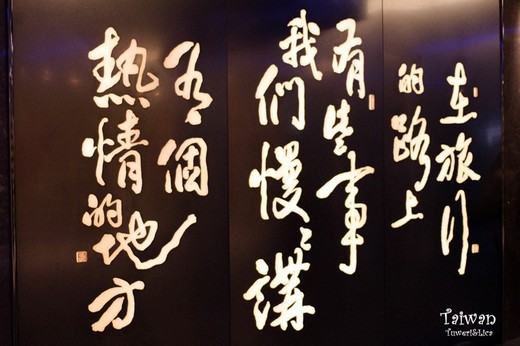 在旅行
的路上
有些事
我們慢〻講
有個
熱情的地方
Taiwan
Tuweri&Lica